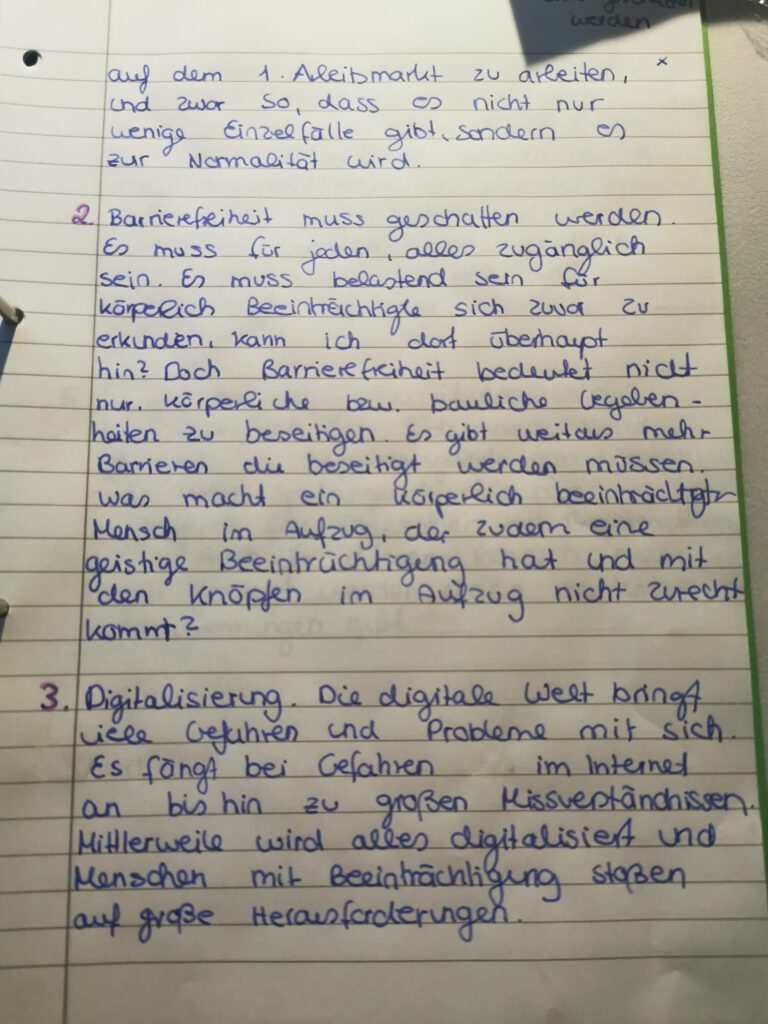 werden
auf dem 1. Arbeitsmarkt zu arbeiten, x
und zwar so, dass es nicht nur
wenige Einzelfälle gibt, sondern es
zur Normalität wird.
2. Barrierefreiheit muss geschaffen werden.
Es muss für jeden, alles zugänglich
sein. Es muss belastend sein für
körperlich Beeinträchtigte sich zuvor zu
erkunden, kann ich dort überhaupt
hin? Doch Barrierefreiheit bedeutet nicht
nur, körperliche bzw. bauliche Gegeben-
heiten zu beseitigen. Es gibt weitaus mehr
Barrieren die beseitigt werden müssen.
Was macht ein körperlich beeinträchtigter
Mensch im Aufzug, der zudem eine
geistige Beeinträchtigung hat und mit
den Knöpfen im Aufzug nicht zurecht
kommt?
3. Digitalisierung. Die digitale Welt bringt
viele Gefahren und Probleme mit sich.
Es fängt bei Gefahren im Internet
an bis hin zu großen Missverständnissen.
Mittlerweile wird alles digitalisiert und
Menschen mit Beeinträchtigung stoßen
auf große Herausforderungen.